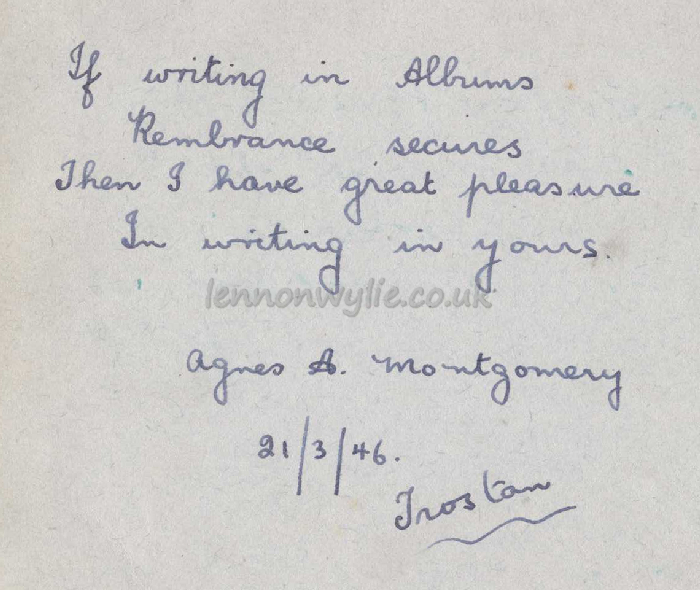 If writing in Albums
Rembrance secures
Then I have great pleasure
In writing in yours.
lennonwylie.co.uk
Agnes A. Montgomery
21/3/46.
Trostan